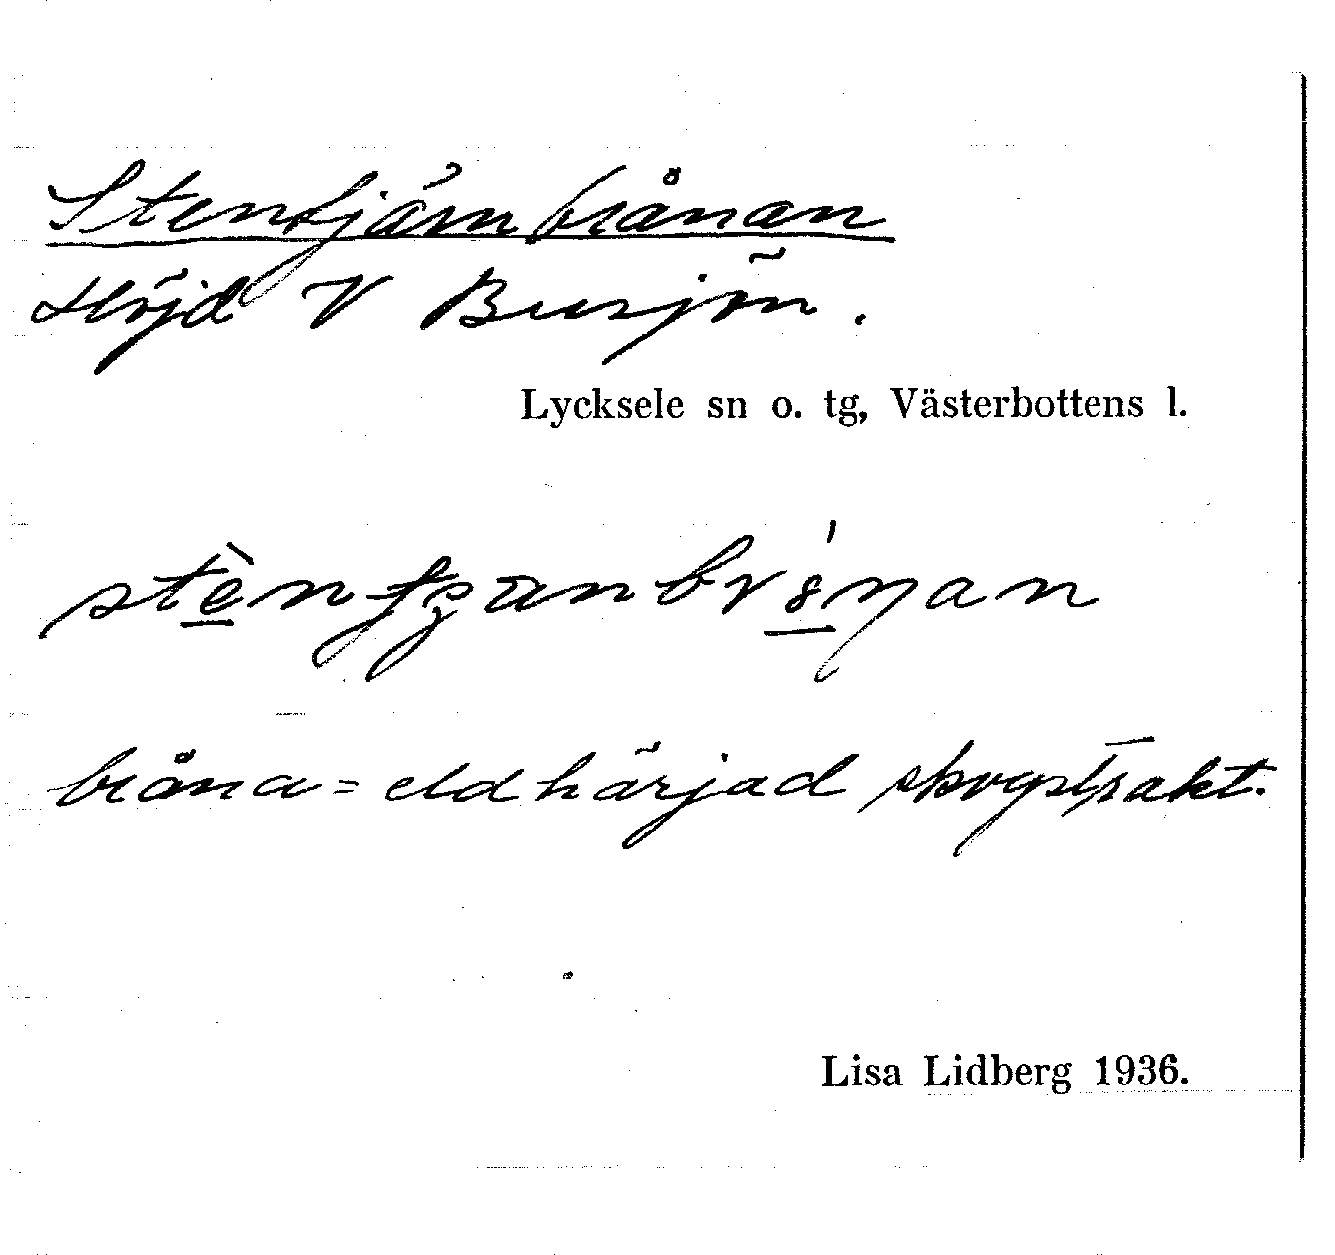 Stentjärnbrånan
Höjd V Bursjön.
Lycksele sn o. tg, Västerbottens l.
bråna = eldhärjad skogstrakt.
Lisa Lidberg 1936.